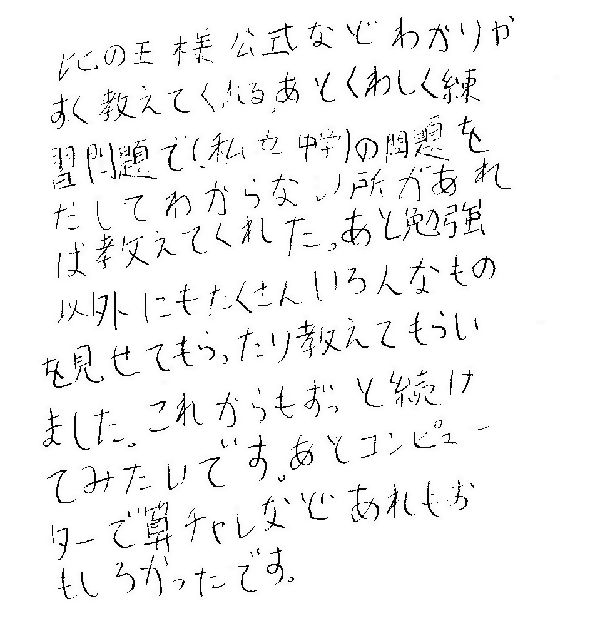 比の王様公式などわかりや
すく教えてくれる。あとくわしく練
習問題で(私立中学)の問題を
だしてわからない所があれ
ば教えてくれた。あと勉強
以外にもたくさんいろんなもの
を見せてもらったり教えてもらい
ました。これからもずっと続け
てみたいです。あとコンピュー
ターで算チャレなどあれもお
もしろかったです。